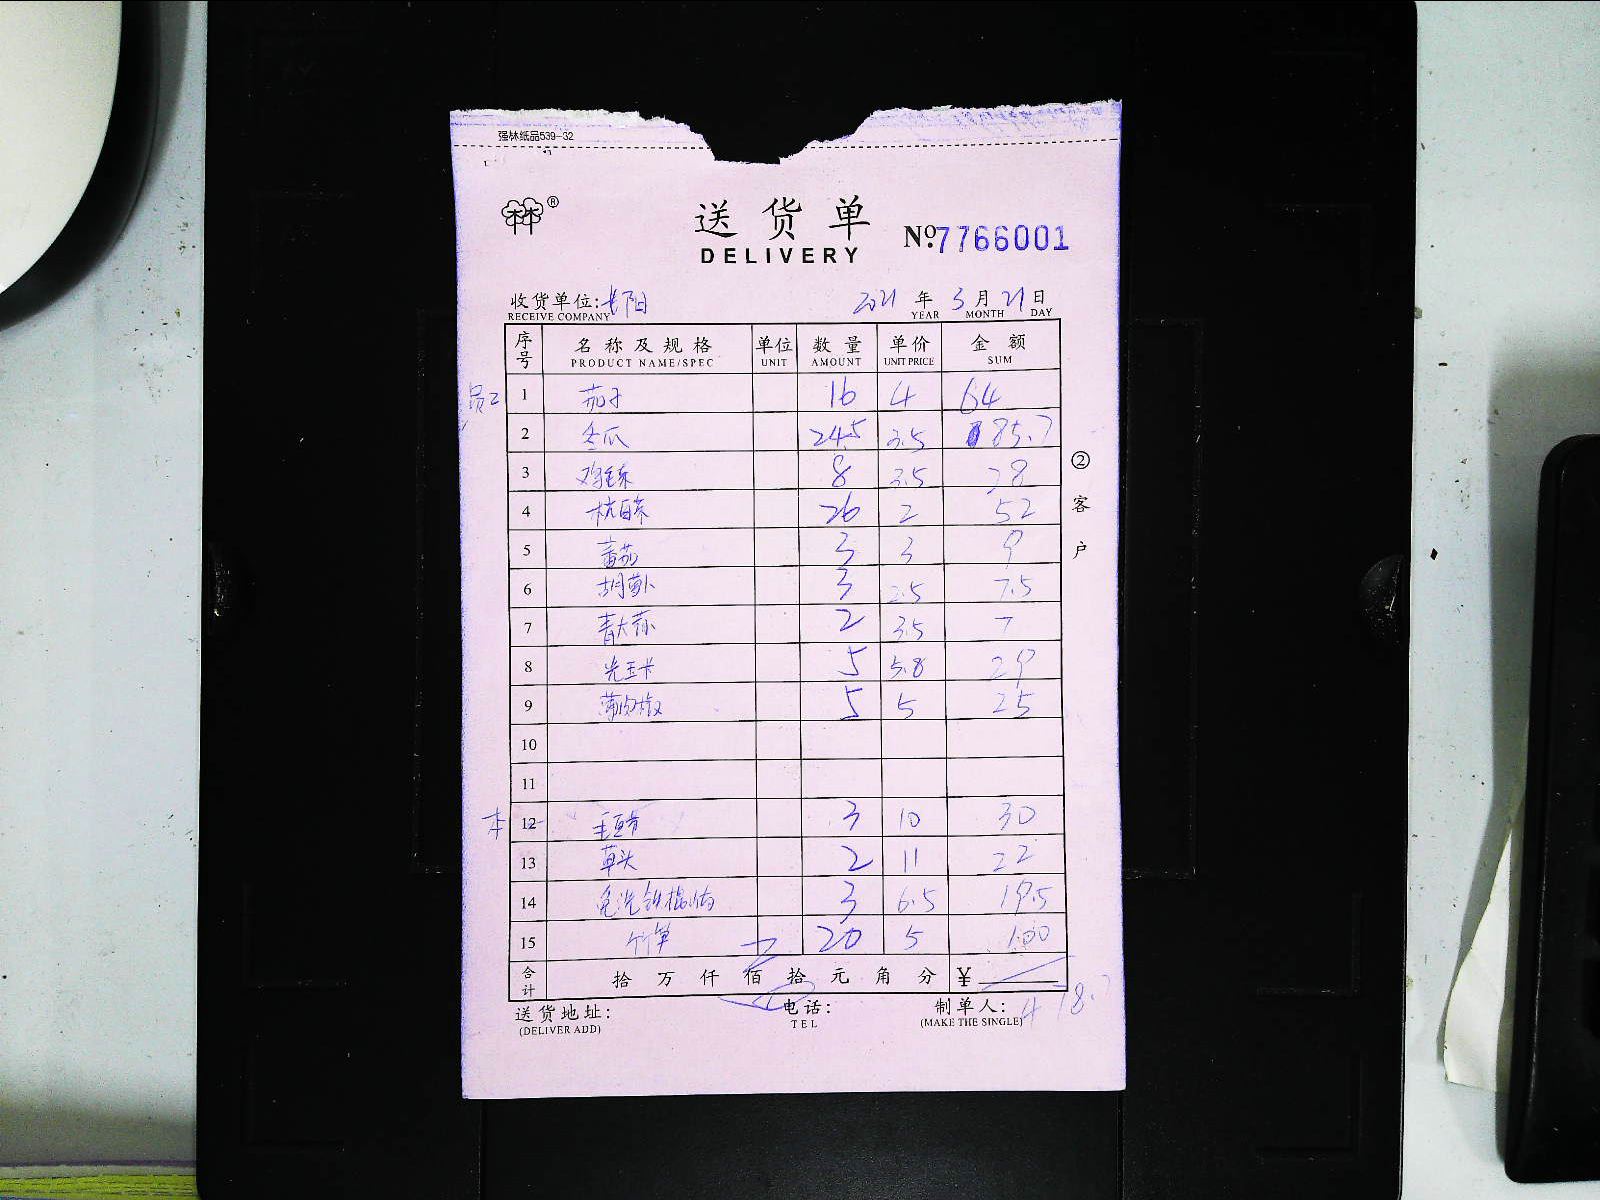 强林纸品539-32
® 送货单 №7766001
DELIVERY
收货单位: 长阳 2021 年 3 月 21 日
RECEIVE COMPANY YEAR MONTH DAY
序号 名称及规格 单位 数量 单价 金额
PRODUCT NAME/SPEC UNIT AMOUNT UNIT PRICE SUM
员工 1 茄子 16 4 64
2 冬瓜 24.5 3.5 85.7
3 鸡毛菜 8 3.5 28
4 杭白菜 26 2 52
5 番茄 3 3 9
6 胡萝卜 3 2.5 7.5
7 青大蒜 2 3.5 7
8 5 5.8 29
9 薄肉椒 5 5 25
10
11
本 12 毛豆节 3 10 30
13 草头 2 11 22
14 3 6.5 19.5
15 竹笋 20 5 100
合计 拾 万 仟 佰 拾 元 角 分 ¥
478.7
送货地址: 电话: 制单人:
(DELIVER ADD) TEL (MAKE THE SINGLE)
②客户